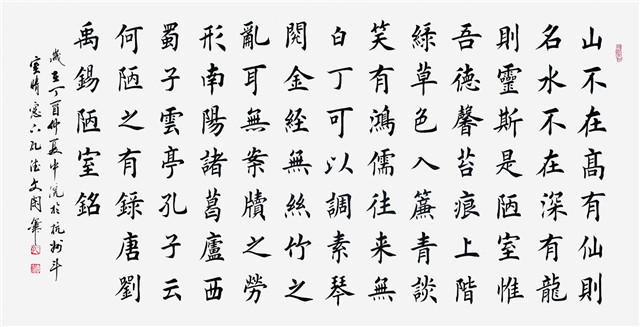 山不在髙有仙則
名水不在深有龍
則靈斯是陋室惟
吾德馨苔痕上階
綠草色入簾青談
笑有鴻儒往来無
白丁可以調素琴
閱金經無絲竹之
亂耳無案牘之勞
形南陽諸葛廬西
蜀子雲亭孔子云
何陋之有錄唐劉
禹錫陋室銘
歲在丁酉仲夏中浣於杭州斗
室晴窓